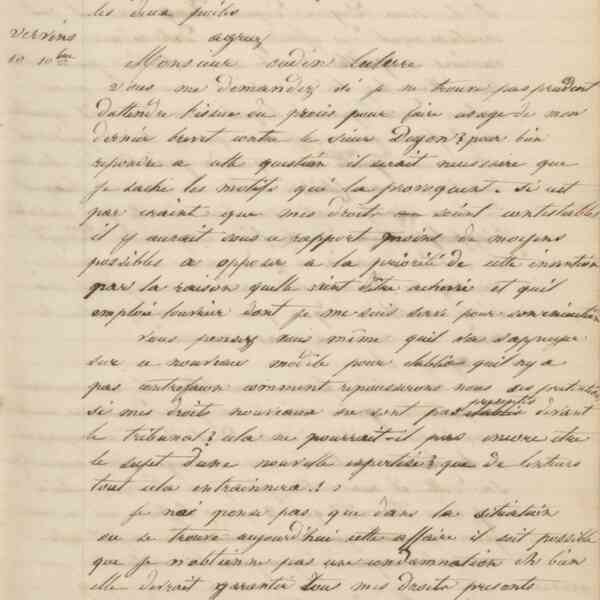 les deux poêles
agréez
Vervins
10 10bre
Monsieur oudin Leclere
vous me demandez si je ne trouve pas prudent
d'attendre l'issue du procès pour faire usage de mon
dernier brevet contre le sieur Duyon? pour bien
repondre a cette question il serait necessaire que
je sache les motifs qui la provoquent. Si c'est
par craint que mes droits soient contestables
il y aurait sous ce rapport moins de moyens
possibles a opposer a la priorité de cette invention
par la raison quelle vient d'être achevée et quil
emploie l'ouvrier dont je me suis servi pour son execution
vous pensez vous même quil va s'appuyer
sur ce nouveau modèle pour établir quil ny a
pas contrefaçon comment repousserons nous ses pretentions
si mes droits nouveaux ne sont pas presentés devant
le tribunal? cela ne pourrait-il pas encore etre
le sujet d'une nouvelle expertise? que de lenteurs
tout cela entrainera!!
Je nai pense pas que dans la situation
ou se trouve aujourd'hui cette affaire il soit possible
que je n'obtienne pas une condamnation eh bien
elle devrait garantir tous mes droits presents